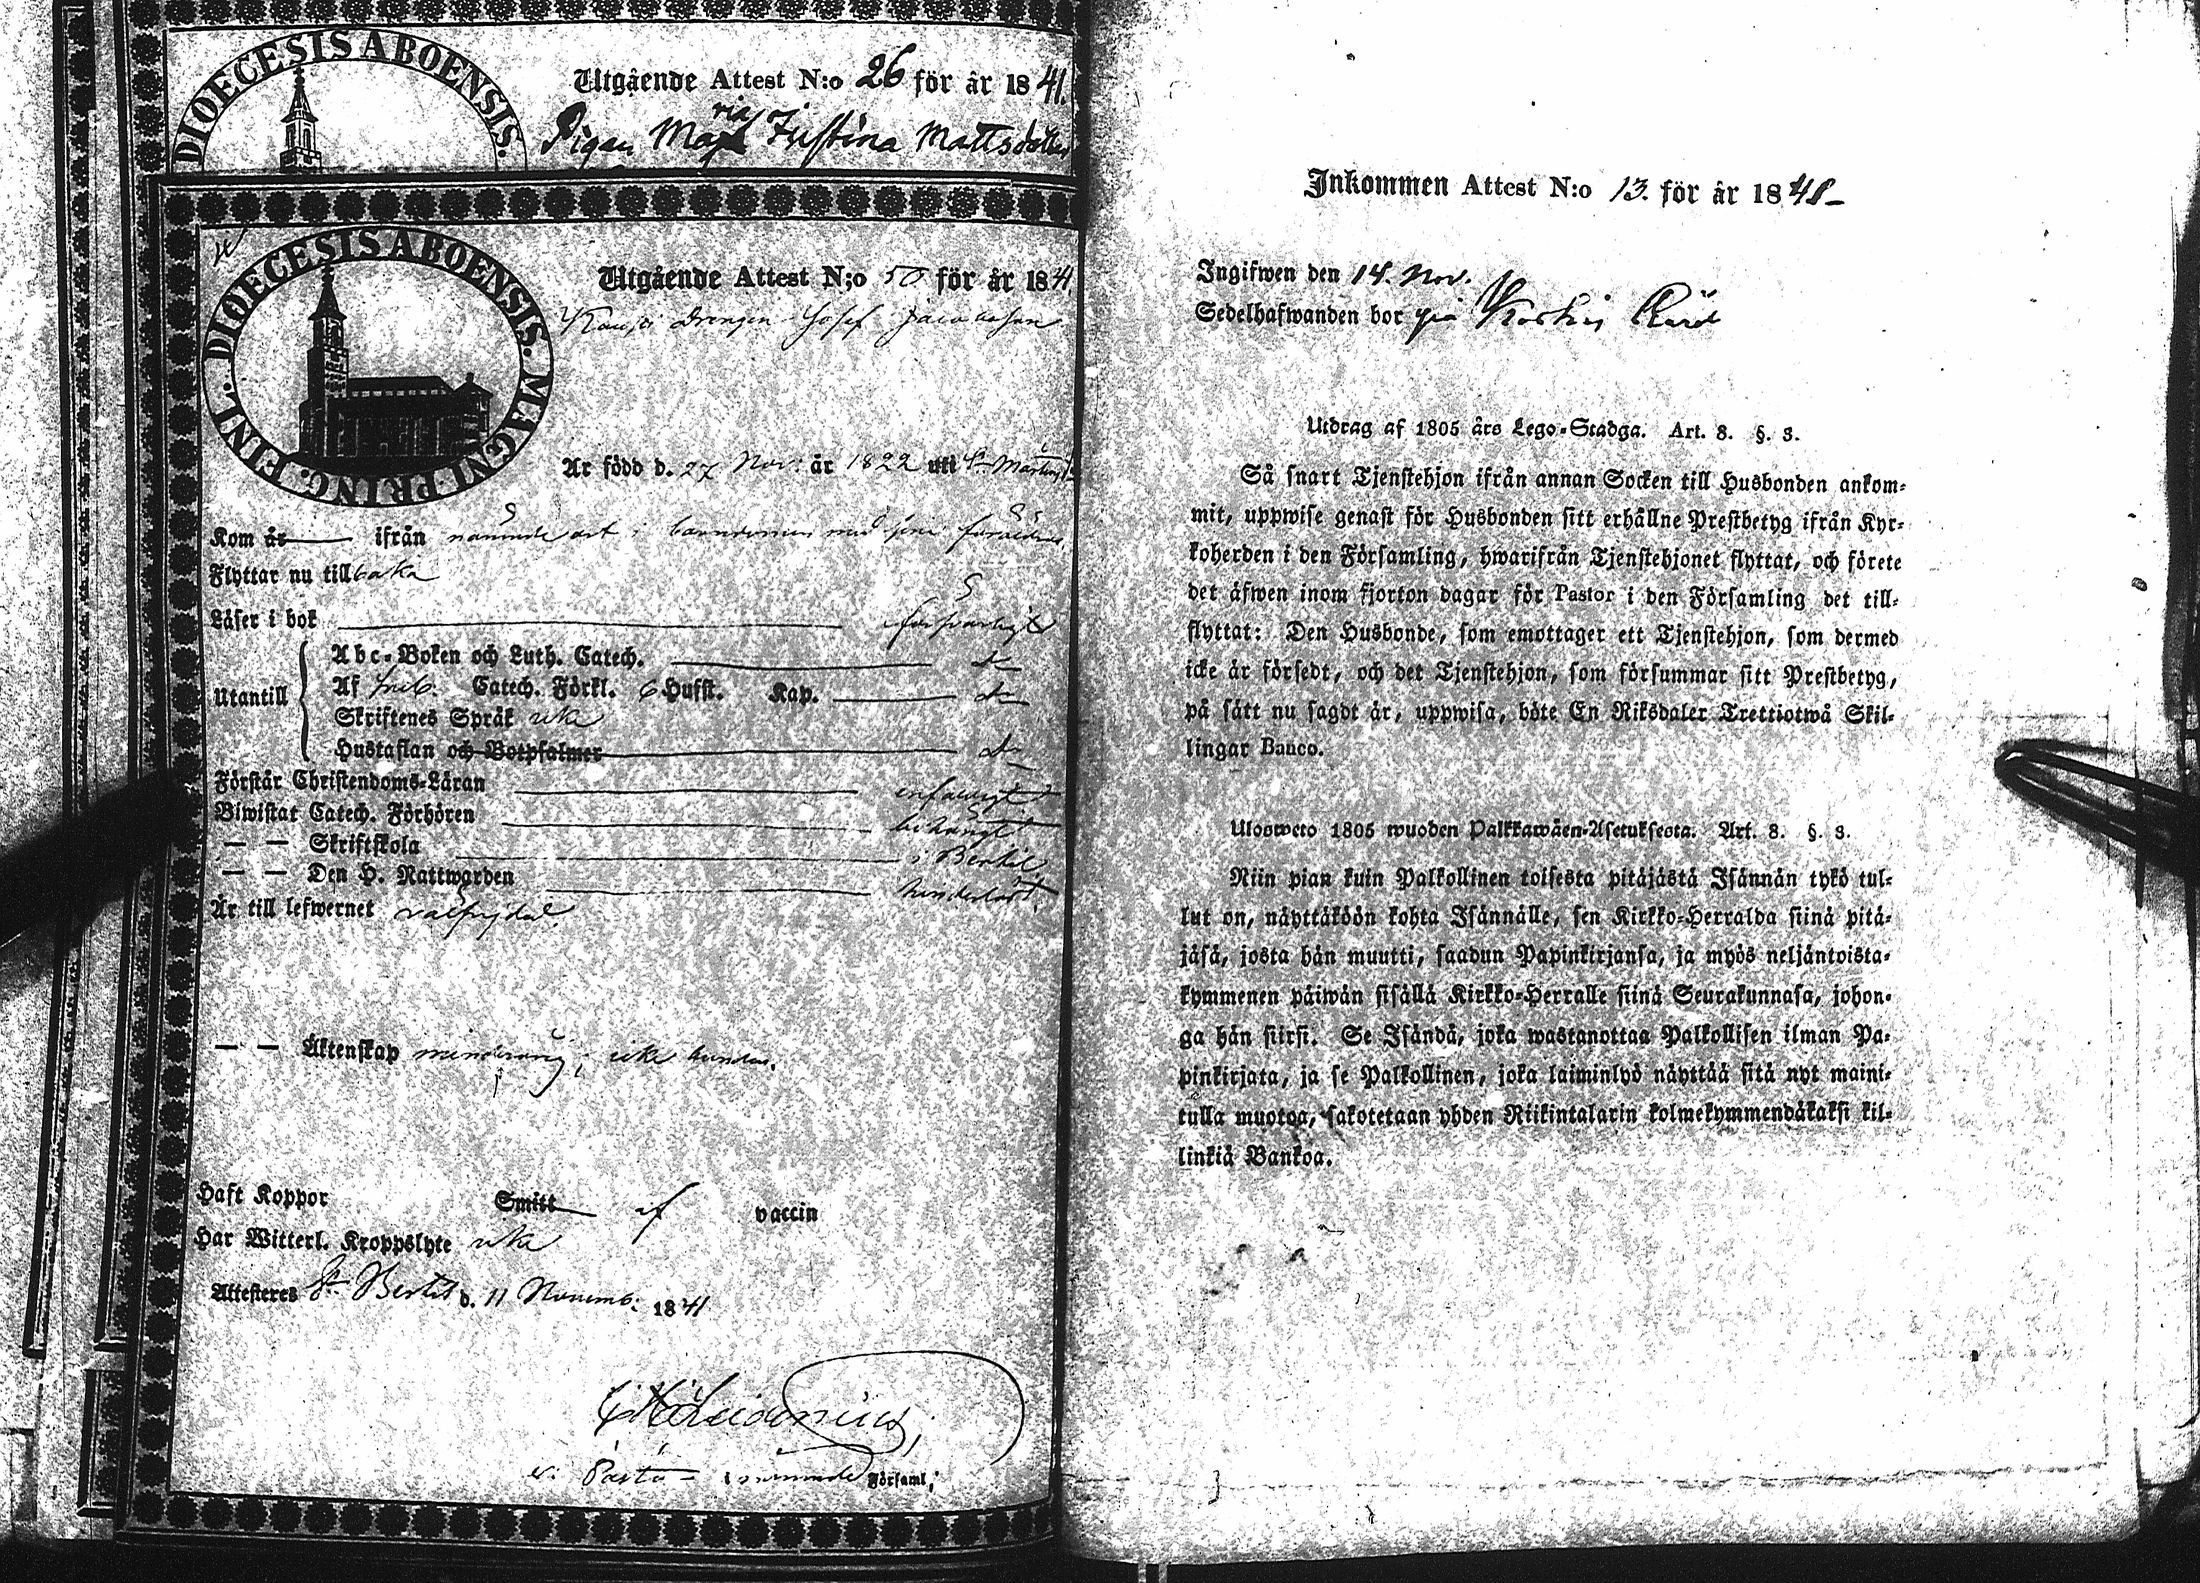 DIOECESIS ABOENSIS.
Utgående Attest N:o 26 för år 1841.
Pigan Maria Justina Mattsdotter
DIOECESIS ABOENSIS. MAGNI PRINC. FINL.
Utgående Attest N:o 50 för år 1841
Drengen Josef Jacobsson
Är född d. 27 Nov: år 1822 uti St Mårtens
Kom år ifrån nämnde ort i barndomen med sina föräldrar.
Flyttar nu tillbaka
Läser i bok försvarligt
Utantill
Abc-Boken och Luth. Catech. do
Af Catech. Förkl. 6 Hufst. Kap. do
Skriftenes Språk icke
Hustaflan och Botpsalmer do
Förstår Christendoms-Läran enfaldigt
Biwistat Catech. Förhören behörigt
— — Skriftskola i Bertil
— — Den H. Nattwarden hinderlöst.
Är till lefwernet välfrejdad.
— — Äktenskap minderårig; icke bunden.
Haft Koppor Smitt af vaccin
Har Witterl. Kroppslyte icke
Attesteras St Bertils d. 11 Novemb: 1841
v: Pastor i nämnde Församl.
Inkommen Attest N:o 13. för år 1841
Ingifwen den 14. Nov.
Sedelhafwanden bor på
Utdrag af 1805 års Lego-Stadga. Art. 8. §. 3.
Så snart Tjenstehjon ifrån annan Socken till Husbonden ankom-
mit, uppwise genast för Husbonden sitt erhållne Prestbetyg ifrån Kyr-
koherden i den Församling, hwarifrån Tjenstehjonet flyttat, och förete
det äfwen inom fjorton dagar för Pastor i den Församling det till-
flyttat: Den Husbonde, som emottager ett Tjenstehjon, som dermed
icke är försedt, och det Tjenstehjon, som försummar sitt Prestbetyg,
på sätt nu sagdt är, uppwisa, böte En Riksdaler Trettiotwå Skil-
lingar Banco.
Ulosweto 1805 wuoden Palkkawäen-Asetuksesta. Art. 8. §. 3.
Niin pian kuin Palkollinen toisesta pitäjästä Isännän tykö tul-
lut on, näyttäköön kohta Isännälle, sen Kirkko-Herralda siinä pitä-
jäsä, josta hän muutti, saadun Papinkirjansa, ja myös neljäntoista-
kymmenen päiwän sisällä Kirkko-Herralle siinä Seurakunnasa, johon-
ga hän siirsi. Se Isändä, joka wastanottaa Palkollisen ilman Pa-
pinkirjata, ja se Palkollinen, joka laiminlyö näyttää sitä nyt maini-
tulla muotoa, sakotetaan yhden Riikintalarin kolmekymmendäkaksi kil-
linkiä Bankoa.